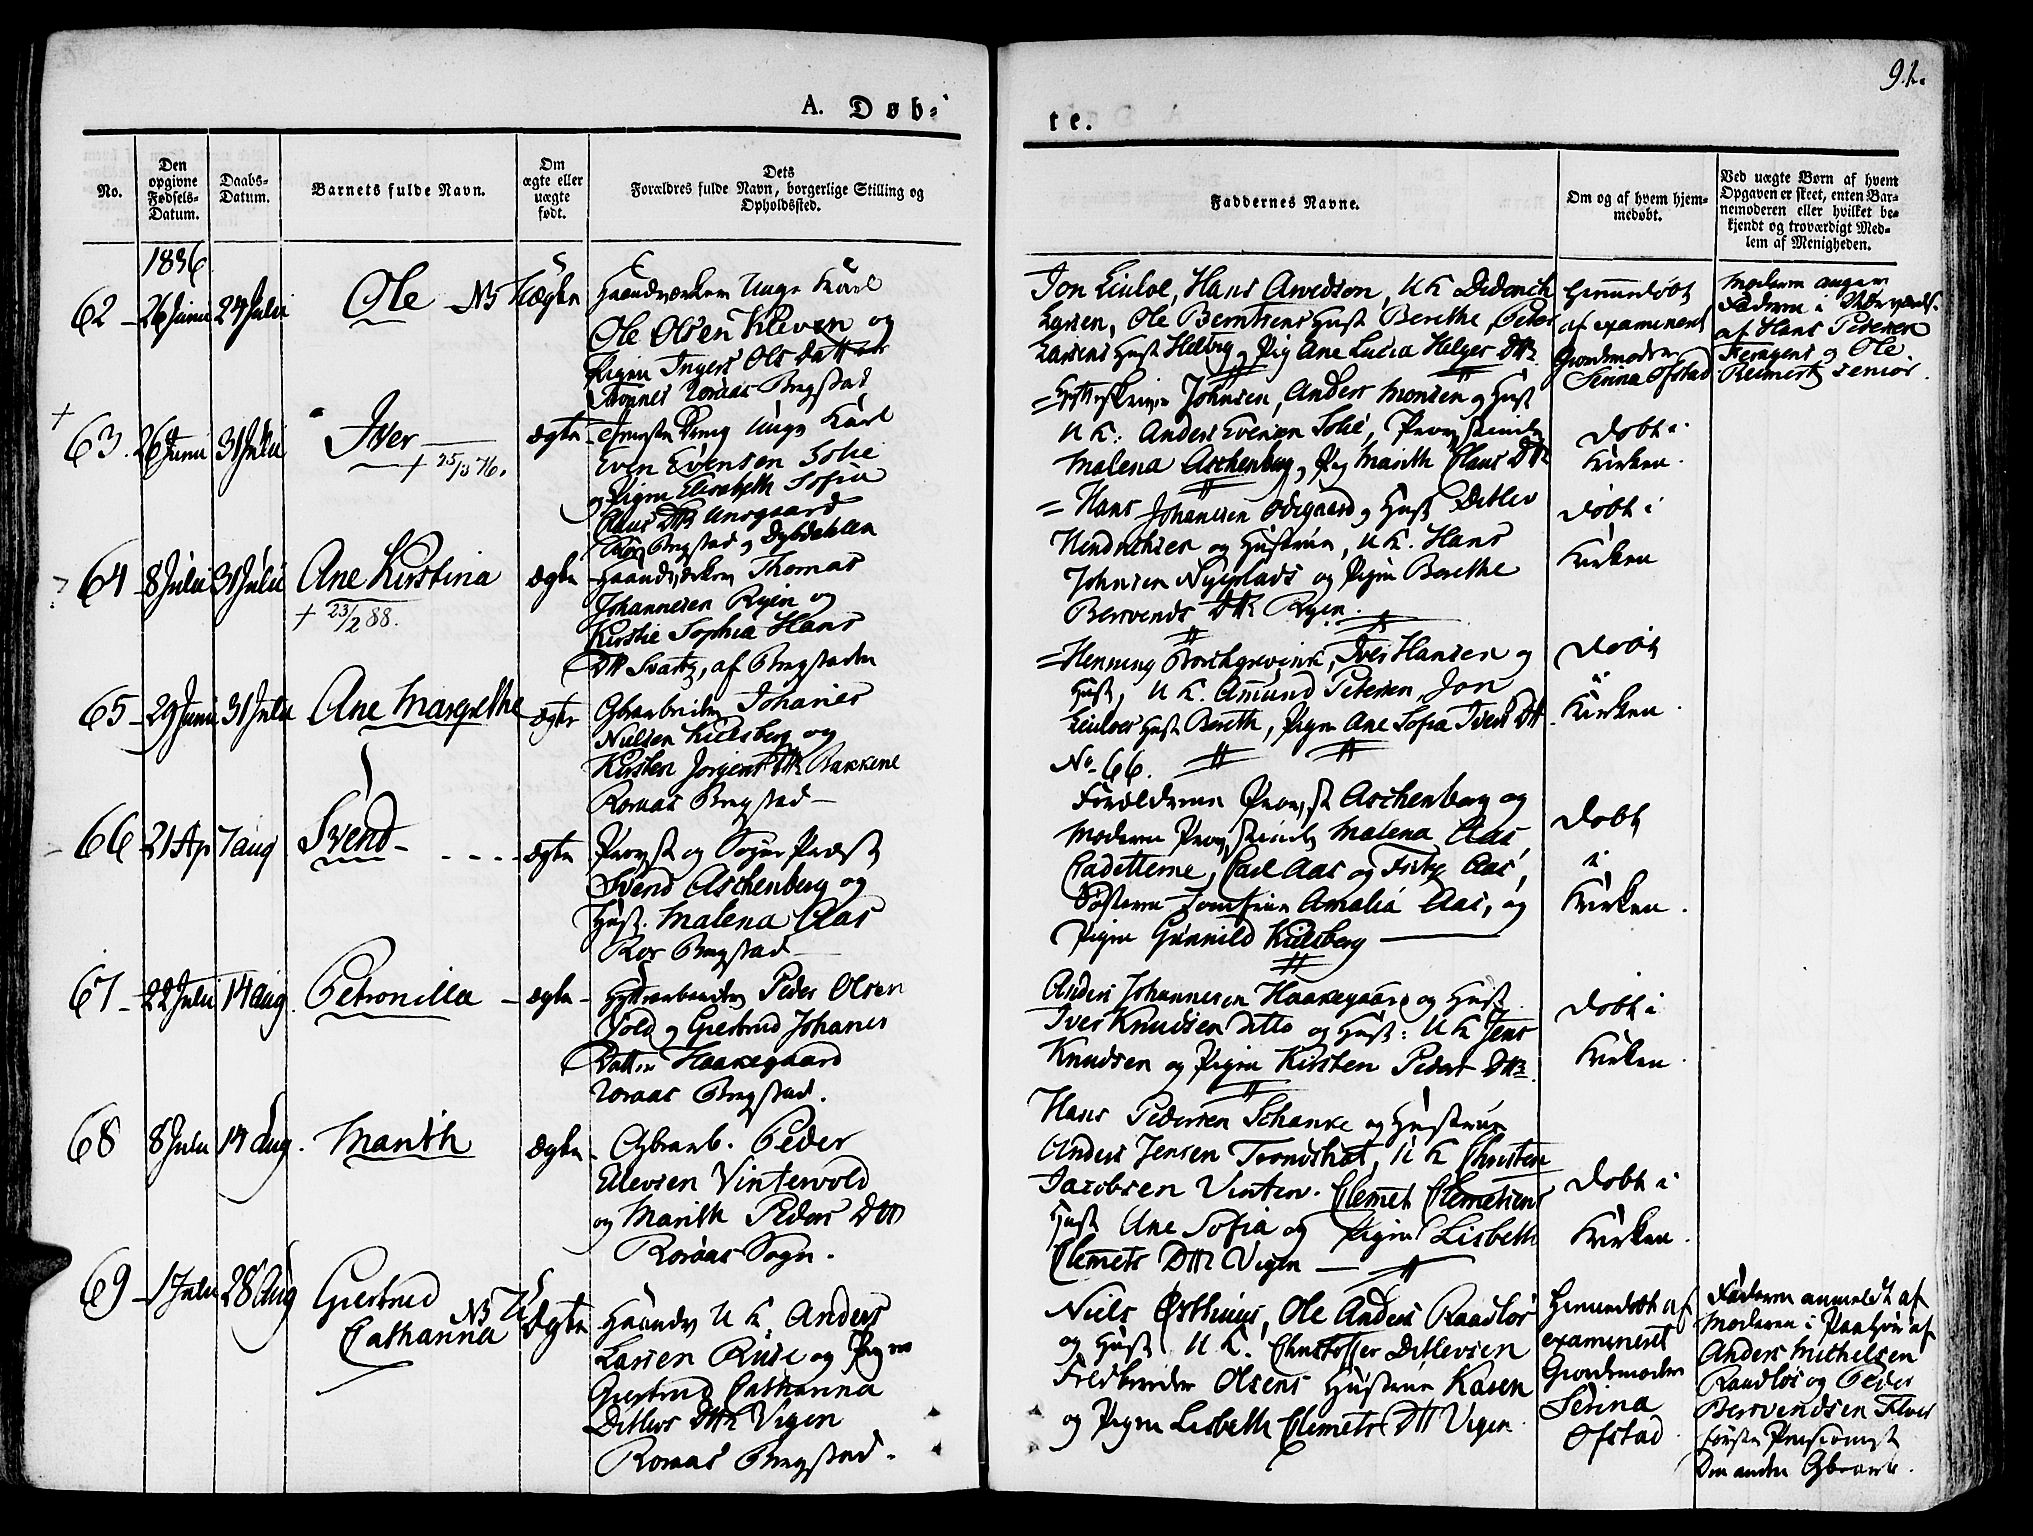 91.
A. Døb-
te.
No.
Den opgivne Fødsels-Datum.
Daabs-Datum.
Barnets fulde Navn.
Om ægte eller uægte født.
Dets Forældres fulde Navn, borgerlige Stilling og Opholdssted.
Faddernes Navne.
Om og af hvem hjem-medøbt.
Ved uægte Børn af hvem Opgaven er skeet, enten Bar-nemoderen eller hvilket be-kjendt og troværdigt Med-lem af Menigheden.
1836
62 – 26 Junii 24 Julii Ole NB Uægte
Haandværker Unge Karl
Ole Olsen Kleven og
Pigen Ingers Ols Datter
Tronnes Roraas Bergstad
Jon Eiulve, Hans Arvedson, UK Diderich
Larsen, Ole Berntsens Hust Berethe, Peter
Larsens Hust Helbrg og Pig Ane Lucia Helges Dtr
Hiemmedøbt
af examineret
Giordemoder
Serina Ofstad
Moderen angav
Faderen i
af Hans Petersen
Feragens og Ole
Reimert senior.
63. 26 Junii 31 Julii Iver ægte
+ 25/3 76.
Unge Karl
Even Evensen Solie
og Pigen Elisabeth Sofia
Claus Dtr Aasgaard
Bergstad og Dybdahlen
Hytteskriver Johnsen, Anders Monsen og Hust
UK. Anders Evensen Solie, Provstinde
Malena Aschenberg, Pig Marith Claus Dtr
Døbt i
Kirken.
64 – 8 Julii 31 Julii Ane Kirstina ægte
+ 23/2 88.
Haandværker Thomas
Johannesen Ryen og
Kirstie Sophia Hans
Dtr Svartz, af Bergstaden
= Hans Johannesen Ødegaard og Hust Ditlev
Hindrichsen og Hustrue, UK. Hans
Johnsen Nyeplads og Pigen Berethe
Bersvends Dtr Ryen.
Døbt i
Kirken
65 – 29 Junii 31 Julii Ane Margrethe ægte
Gbrarbeider Johanes
Nielsen Kielsberg og
Kirsten Jorgens Dtr Bakkene
Roraas Bergstad –
= Henning Borchgrevink, Iver Hansen og
Hust, UK. Amund Petersen, Jon
Eiulves Hust Bereth, Pigen Ane Sofia Ivers Dtr.
Døbt
i
Kirken.
66 21 Ap 7 aug Svend – ægte
Provst og Sogne Præst
Svend Aschenberg og
Hust. Malena Aas
Ror Bergstad
No 66.
Forældrene Provst Aschenberg og
Moderen Provstinde Malena Aas
Cadetterne, Carl Aas og Fritz Aas,
Søsteren Jomfrue Amalia Aas, og
Pigen Gunnild Kielsberg
Døbt
i
Kirken.
67 – 22 Julii 14 aug. Petronilla – ægte –
Hyttearbeider Peder Olsen
Vold og Giertrud Johanes
Datter Haakegaard
Roraas Bergstad.
Anders Johannesen Haakegaard og Hust
Iver Knudsen ditto og Hust: UK Jens
Knudsen og Pigen Kirsten Peders Dtr.
Døbt i
Kirken.
68 8 Julii 14 Aug. Marith ægte –
Gbrarb. Peder
Ellevsen Vintervold
og Marith Peders Dtr
Roraas Sogn.
Hans Pedersen Schanke og Hustrue
Anders Jensen Trondshat, UK Christen
Jacobsen Vinten. Clemet Clemetsens
Hust Ane Sofia og Pigen Lisbeth
Clemets Dtr Vigen –
Døbt i
Kirken.
69 – 1 Julii 28 Aug Giertrud
Catharina NB Uægte
Haandv UK Anders
Larsen Ruse og Pigen
Giertrud Catharina
Ditlevs Dtr Vigen
Roraas Bergstad.
Niels Østhuus, Ole Anders Raadløs
og Hust UK. Christoffer Ditlevsen
Feldbereder Olsens Hustrue Karen
og Pigen Lisbeth Clemets Dtr Vigen.
Hiemmedøbt af
examineret
Giordemoder
Serina
Ofstad
Faderen anmeldt af
Moderen i Paahør af
Anders Michelsen
Raadløs og Peder
Bersvendsen
første Pensionist
Den anden Gbrarb.